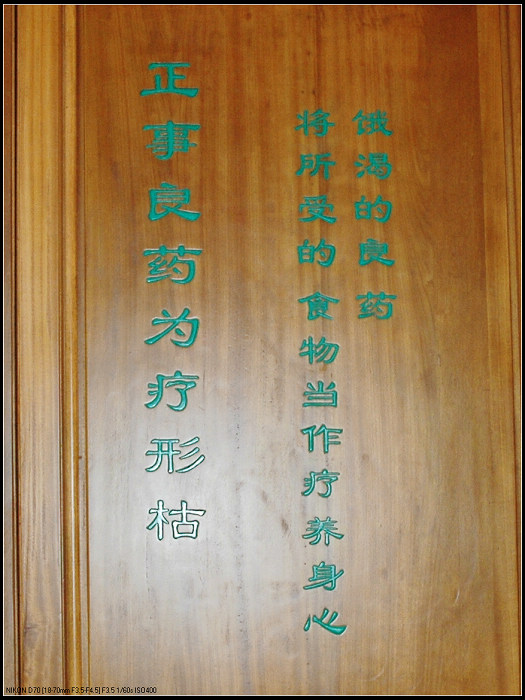 正事良药为疗形枯
将所受的食物当作疗养身心
饿渴的良药
NIKON D70 [18-70mm F3.5-F4.5] F3.5 1/60s ISO400